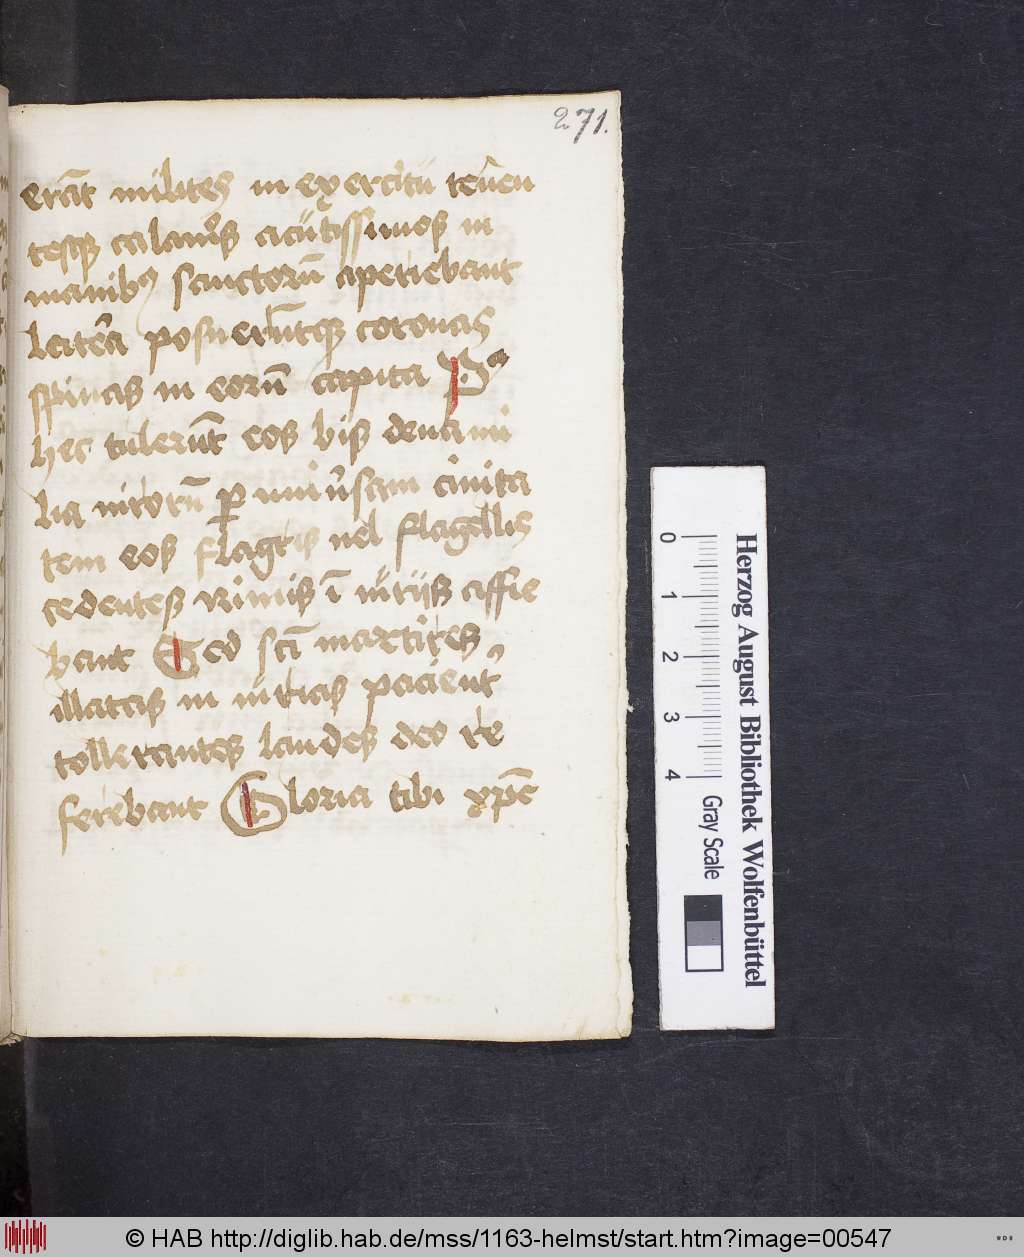 271.
erāt milites in exercitu teñen
tesqꝫ calamꝰs acutissimos in
manibꝰ sanctorū apetiebant
lateꝛa posuerūtqꝫ coronas
spineas in eorū capita Post
hec tulerūt eos bis dena mi
lia virorū ꝑ vniūsam ciuita
tem eos flagris uel flagellis
cedentes nimis ī iūriis affie
bant Sed scī martires
illatas iniurias pacient᷑
tollerantes laudes deo re
ferebant Gloria tibi xp̄e
0 1 2 3 4
Gray Scale
Herzog August Bibliothek Wolfenbüttel
© HAB http://diglib.hab.de/mss/1163-helmst/start.htm?image=00547